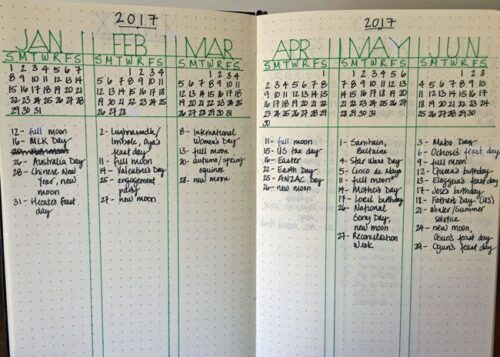 2017
JAN
S M T W R F S
1 2 3 4 5 6 7
8 9 10 11 12 13 14
15 16 17 18 19 20 21
22 23 24 25 26 27 28
29 30 31
12 - full moon
16 - MLK Day
26 - Australia Day
28 - Chinese New
Year, new
moon
31 - Hecate's feast
day
FEB
S M T W R F S
1 2 3 4
5 6 7 8 9 10 11
12 13 14 15 16 17 18
19 20 21 22 23 24 25
26 27 28
2 - Lughnasadh/
Imbolc, Oya's
feast day
11 - full moon
14 - Valentine's Day
25 - engagement
party
27 - new moon
MAR
S M T W R F S
1 2 3 4
5 6 7 8 9 10 11
12 13 14 15 16 17 18
19 20 21 22 23 24 25
26 27 28 29 30 31
8 - International
Women's Day
13 - full moon
20 - autumn/spring
equinox
28 - new moon
2017
APR
S M T W R F S
1
2 3 4 5 6 7 8
9 10 11 12 13 14 15
16 17 18 19 20 21 22
23 24 25 26 27 28 29
30
11 - full moon
15 - US tax day
16 - Easter
22 - Earth Day
25 - ANZAC Day
26 - new moon
MAY
S M T W R F S
1 2 3 4 5 6
7 8 9 10 11 12 13
14 15 16 17 18 19 20
21 22 23 24 25 26 27
28 29 30 31
1 - Samhain,
Beltaine
4 - Star Wars Day
5 - Cinco de Mayo
full moon
14 - Mother's Day
17 - birthday
26 - National
Sorry Day,
new moon
27 - Reconciliation
Week
JUN
S M T W R F S
1 2 3
4 5 6 7 8 9 10
11 12 13 14 15 16 17
18 19 20 21 22 23 24
25 26 27 28 29 30
3 - Mabo Day
6 - Ochosi's feast day
9 - full moon
12 - birthday
13 - feast day
17 - birthday
18 - Father's Day (US)
21 - winter/summer
solstice
24 - new moon,
Ogun's feast day
29 - Ogun's feast day